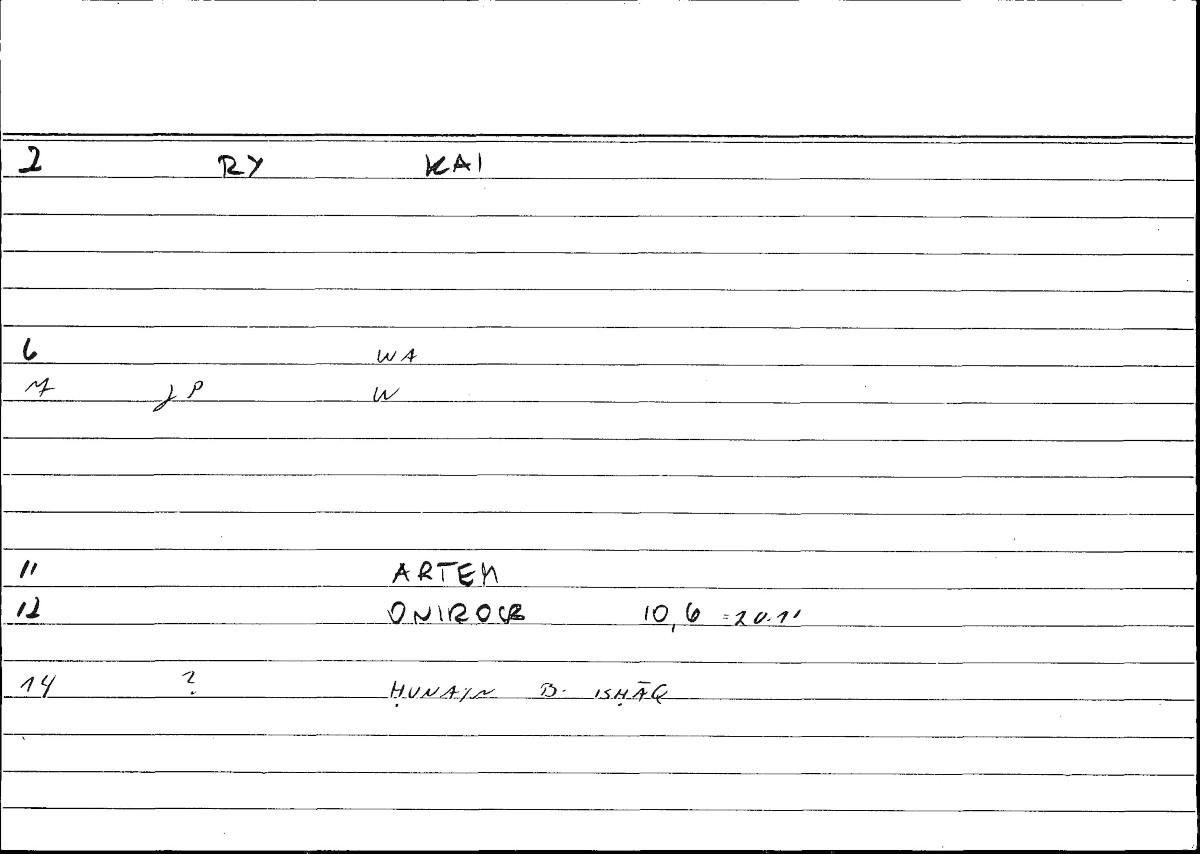 2 RY KAI
6 WA
7 JP W
11 ARTEM
12 ONIROCR 10,6 =20.11
14 ? ḤUNAYN B. ISḤĀQ